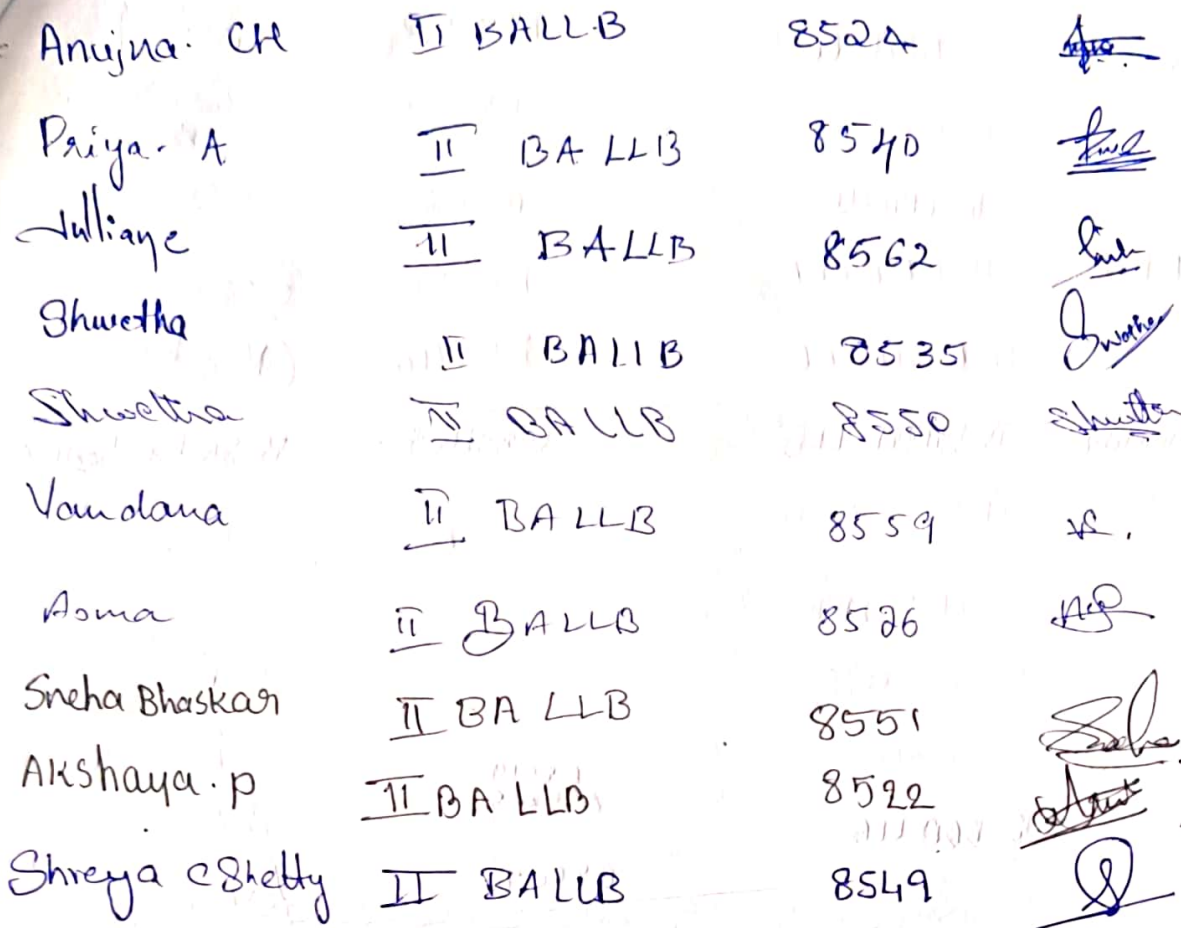 Anujna. CH II BALL.B 8524
Priya. A II BA LLB 8540
Julliane II BALLB 8562
Shwetha II BALLB 8535 Swetha
Shwetha II BALLB 8550 Shwetha
Vandana II BA LLB 8559
Asma II BALLB 8526
Sneha Bhaskar II BA LLB 8551 Sneha
Akshaya. P II BA LLB 8522
Shreya C Shetty II BALLB 8549